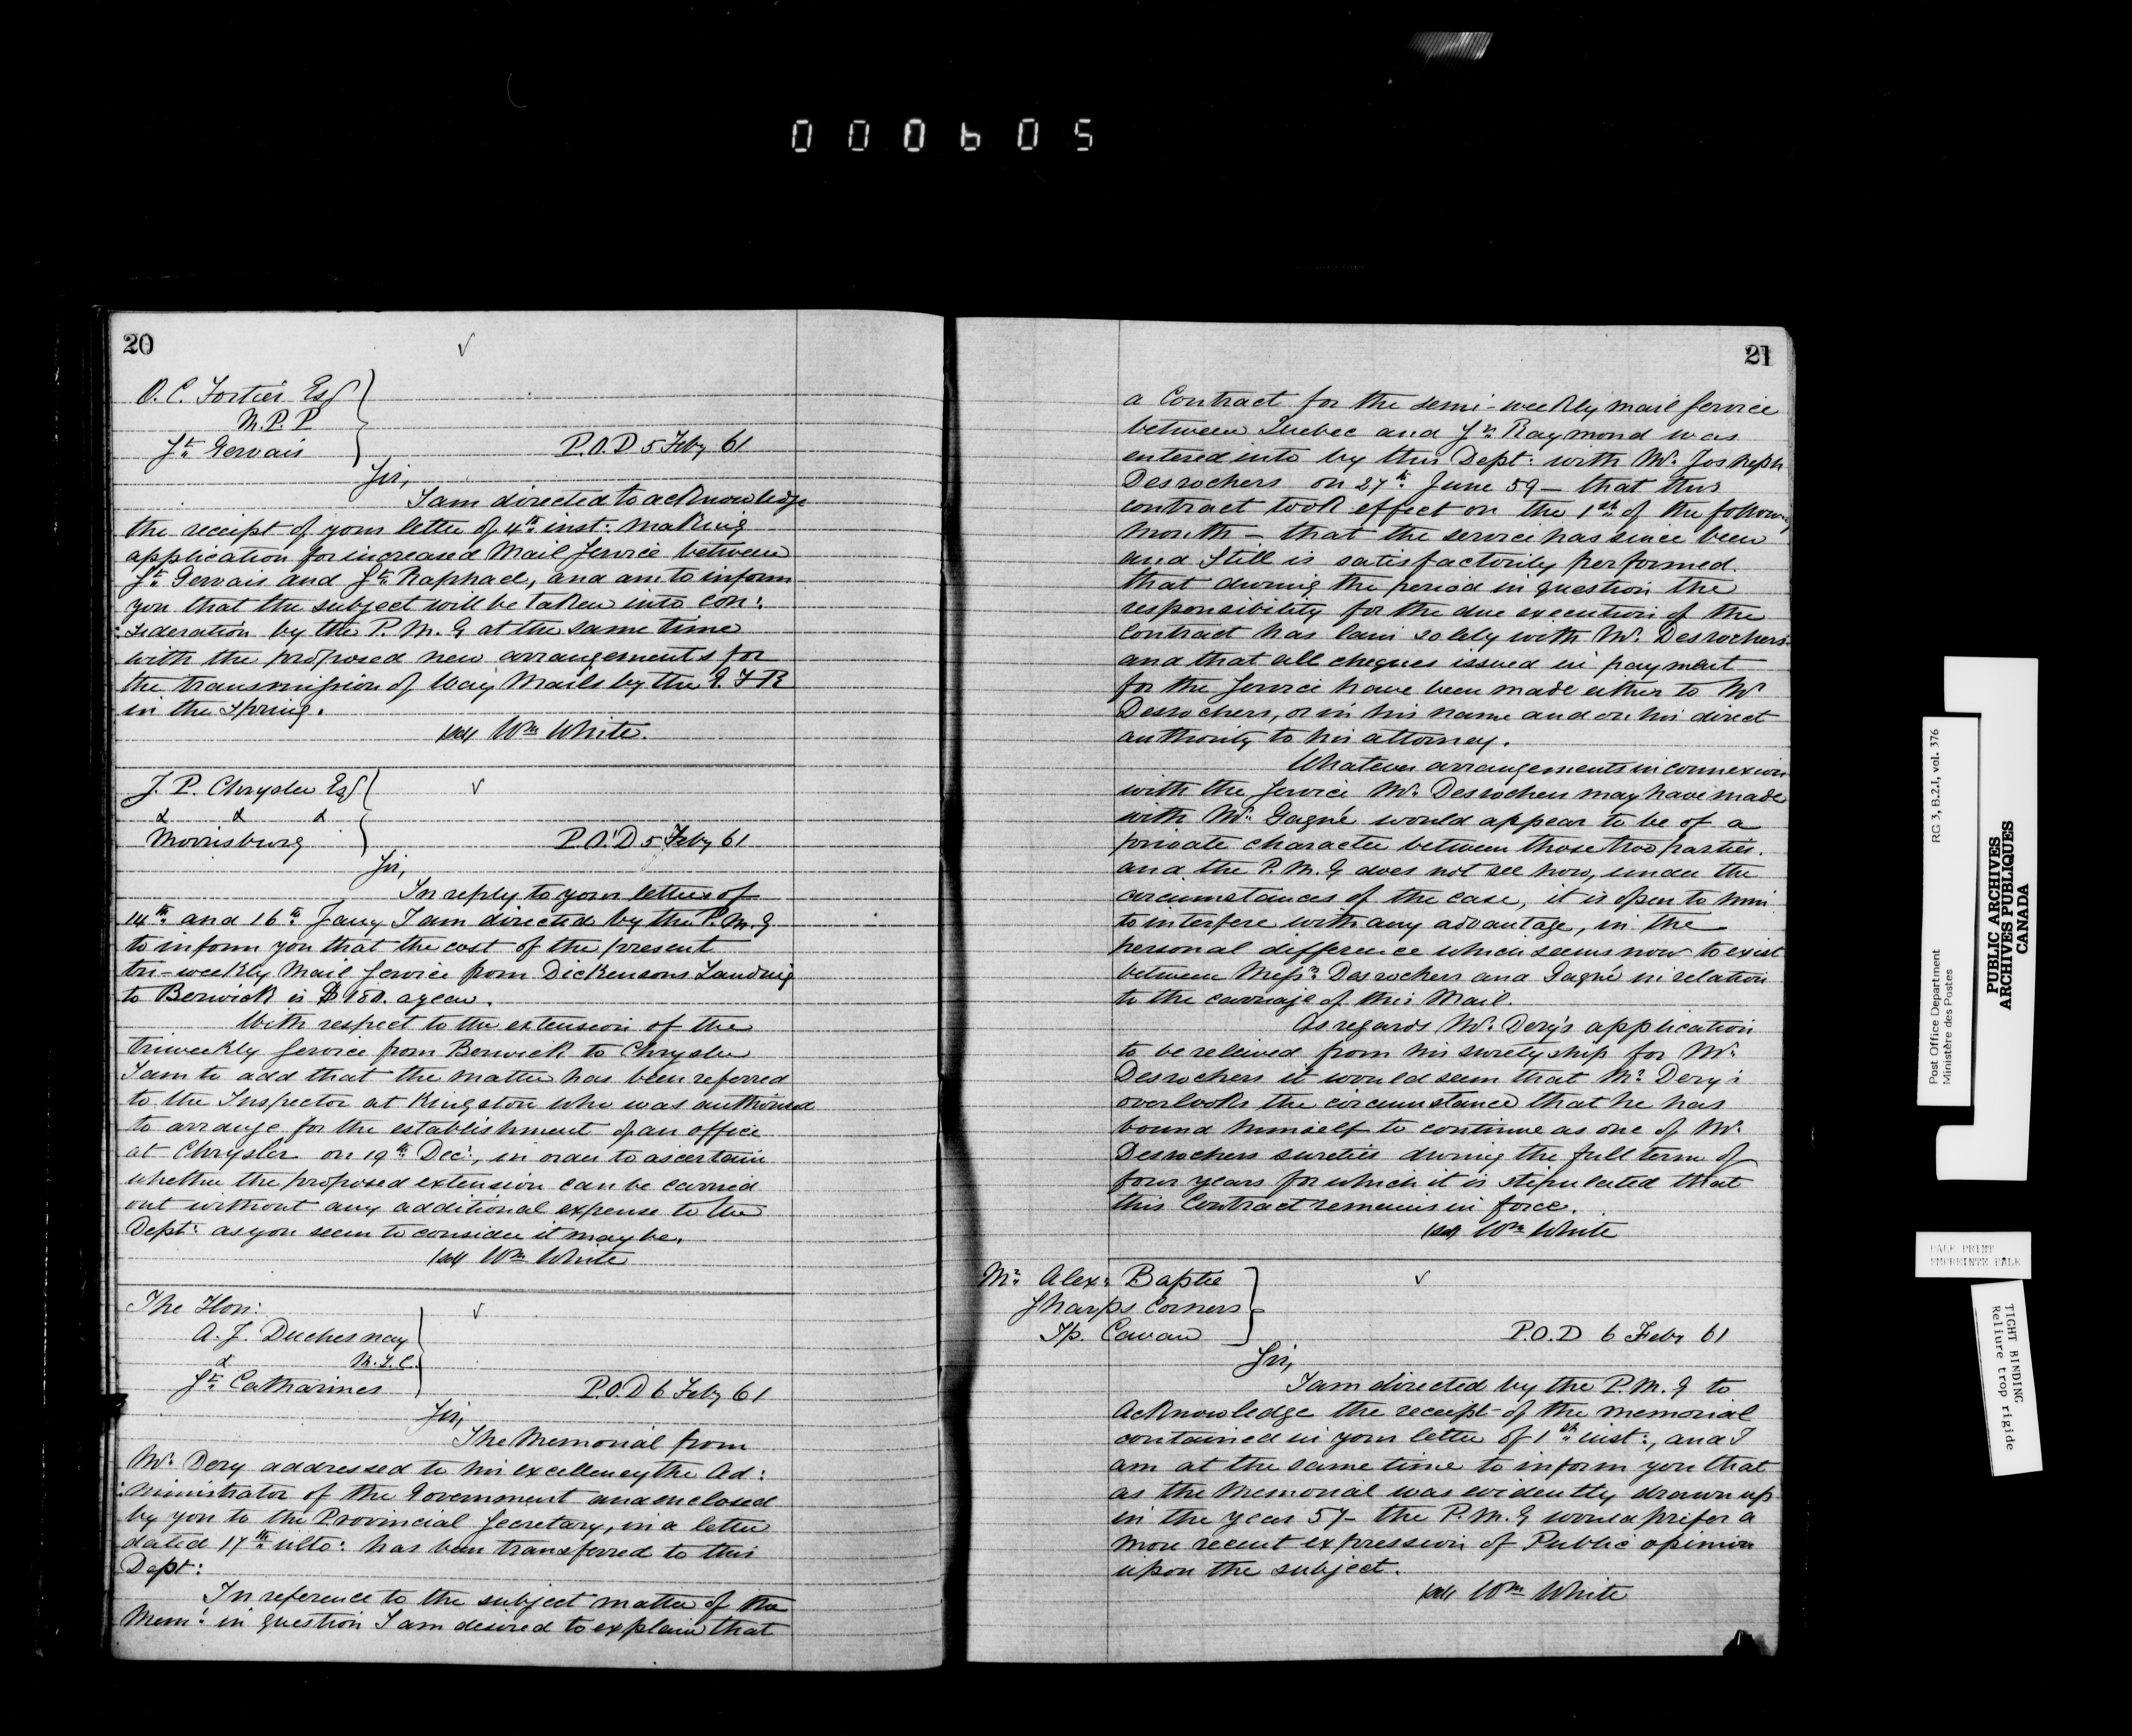 000605
20
O. C. Fortier Esq
M.P.P
St. Gervais
P.O.D 5 Feby 61
Sir,
I am directed to acknowledge
the receipt of your letter of 4th inst: making
application for increased Mail Service between
St. Gervais and St. Raphael, and am to inform
you that the subject will be taken into con:
:sideration by the P. M. G at the same time
with the proposed new arrangements for
the transmission of Way Mails by the G. T R
in the Spring.
Wm White.
J. P. Chrysler Esq
& & &
Morrisburg
P.O.D 5 Feby 61
Sir,
In reply to your letters of
14th and 16th Jany I am directed by the P. M. G
to inform you that the cost of the present
tri-weekly Mail Service from Dickensons Landing
to Berwick is $180. a year.
With respect to the extension of the
triweekly Service from Berwick to Chrysler
I am to add that the matter has been referred
to the Inspector at Kingston who was authorised
to arrange for the establishment of an office
at Chrysler on 19th Dec:, in order to ascertain
whether the proposed extension can be carried
out without any additional expense to the
Dept: as you seem to consider it may be.
Wm White
The Hon:
A. J. Duchesnay
& M.L.C.
St. Catharines
P.O.D 6 Feby 61
Sir,
The Memorial from
Mr. Dery addressed to his excellency the Ad:
:ministrator of the Government and enclosed
by you to the Provincial Secretary, in a letter
dated 17th ulto: has been transferred to this
Dept:
In reference to the subject matter of the
Mem: in question I am desired to explain that
21
a Contract for the semi-weekly mail Service
between Quebec and St. Raymond was
entered into by this Dept: with Mr. Josheph
Desrochers on 27th June 59 - that this
contract took effect on the 1st of the following
month - that the service has since been
and Still is satisfactorily performed.
that during the period in question the
responsibility for the due execution of the
contract has lain solely with Mr. Desrochers
and that all cheques issued in payment
for the Service have been made either to Mr
Desrochers, or in his name and on his direct
authority to his attorney.
Whatever arrangements in connexion
with the Service Mr. Desrochers may have made
with Mr. Gagné would appear to be of a
private character between those two parties.
and the P. M. G does not see how, under the
circumstances of the case, it is open to him
to interfere with any advantage, in the
personal difference which seems now to exist
between Messrs Desrochers and Gagné in relation
to the carriage of this Mail.
As regards Mr. Dery's application
to be releived from his suretyship for Mr.
Desrochers it would seem that Mr. Dery's
overlooks the circumstance that he has
bound himself to continue as one of Mr.
Desrochers sureties during the full term of
four years for which it is stipulated that
this Contract remains in force.
Wm White
Mr. Alex: Baptie
Sharps Corners
Tp. Cavan
P.O.D 6 Feby 61
Sir,
I am directed by the P. M. G to
Acknowledge the receipt of the memorial
contained in your letter of 1st inst:, and I
am at the same time to inform you that
as the Memorial was evidently drawn up
in the year 57 - the P. M. G would prefer a
more recent expression of Public opinion
upon the subject.
Wm White
Post Office Department RG 3, B.2.1, vol. 376
Ministère des Postes
PUBLIC ARCHIVES
ARCHIVES PUBLIQUES
CANADA
PALE PRINT
EMPREINTE PALE
TIGHT BINDING
Reliure trop rigide